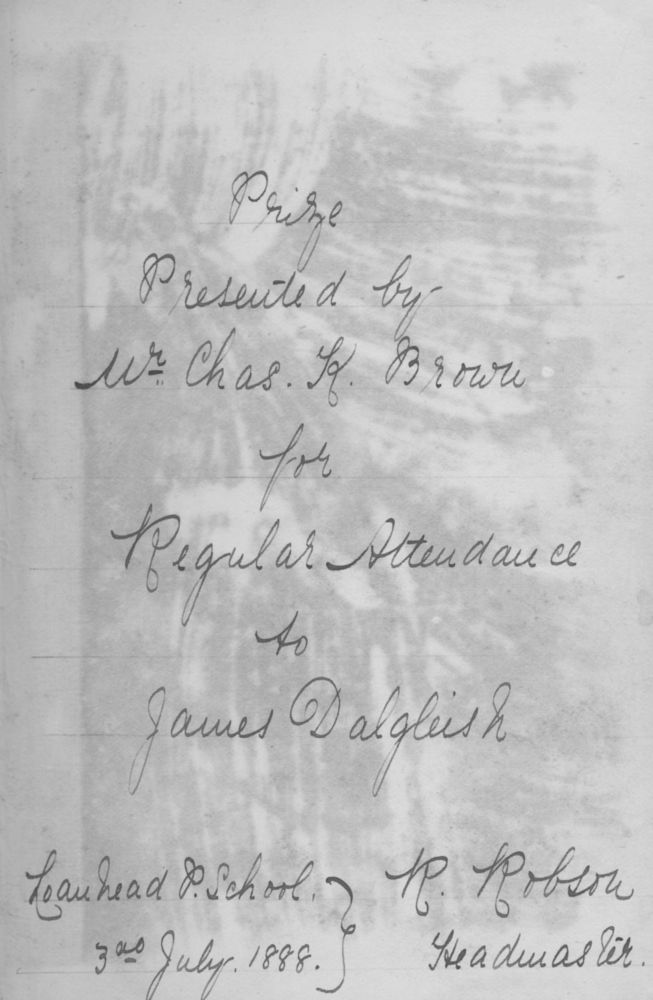 Prize
Presented by
Mr. Chas. K. Brown
for
Regular Attendance
to
James Dalgleish
Loanhead P. School. } R. Robson
3rd July. 1888. } Headmaster.